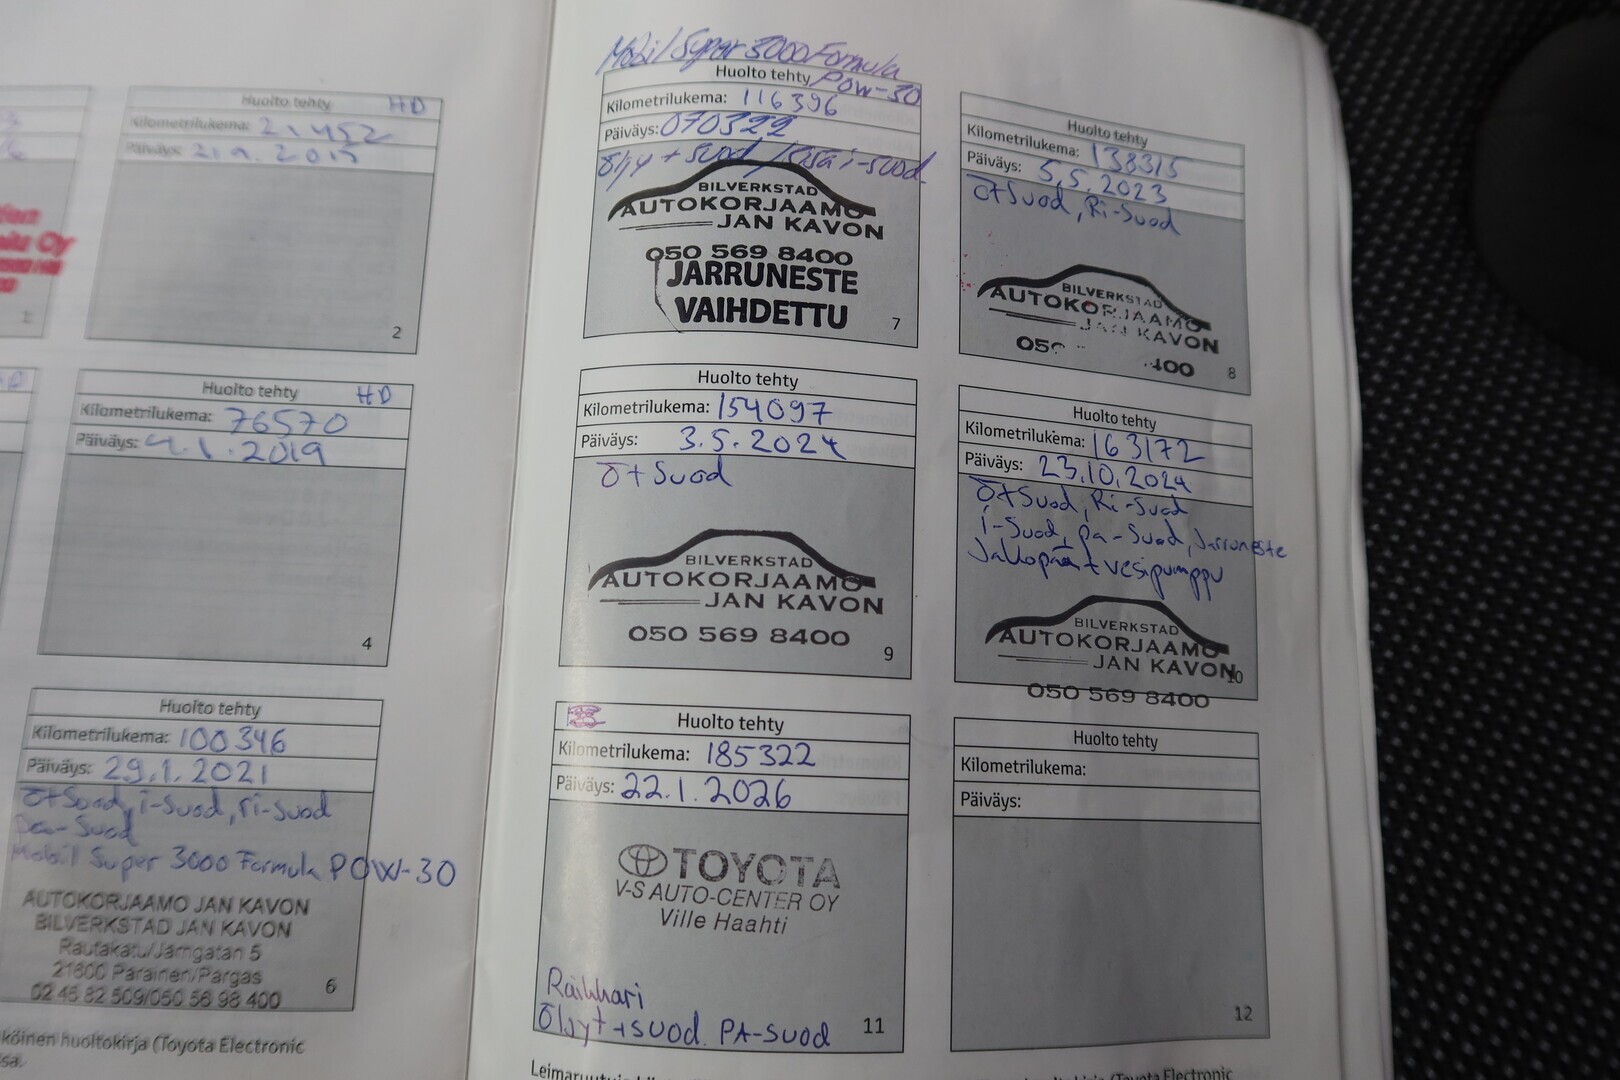 Huolto tehty HD
Kilometrilukema: 21452
Päiväys: 21.9.2017
2
Huolto tehty HD
Kilometrilukema: 76570
Päiväys: 4.1.2019
4
Huolto tehty
Kilometrilukema: 100346
Päiväys: 29.1.2021
Ö+Suod, i-Suod, ri-Suod
Pa-Suod
Mobil Super 3000 Formula POW-30
AUTOKORJAAMO JAN KAVON
BILVERKSTAD JAN KAVON
Rautakatu/Järngatan 5
21600 Parainen/Pargas
02 45 82 509/050 56 98 400
6
köinen huoltokirja (Toyota Electronic
sa.
Mobil Super 3000 Formula
Huolto tehty POW-30
Kilometrilukema: 116396
Päiväys: 070322
Öljy + suod / Risa i-suod.
BILVERKSTAD
AUTOKORJAAMO
JAN KAVON
050 569 8400
JARRUNESTE
VAIHDETTU
7
Huolto tehty
Kilometrilukema: 138315
Päiväys: 5.5.2023
Ö+Suod, Ri-Suod
BILVERKSTAD
AUTOKORJAAMO
JAN KAVON
050 400
8
Huolto tehty
Kilometrilukema: 154097
Päiväys: 3.5.2024
Ö+Suod
BILVERKSTAD
AUTOKORJAAMO
JAN KAVON
050 569 8400
9
Huolto tehty
Kilometrilukema: 163172
Päiväys: 23.10.2024
Ö+Suod, Ri-Suod
i-Suod, pa-Suod, Jarruneste
Jakopää + vesipumppu
BILVERKSTAD
AUTOKORJAAMO
JAN KAVON
10
050 569 8400
Huolto tehty
Kilometrilukema: 185322
Päiväys: 22.1.2026
TOYOTA
V-S AUTO-CENTER OY
Ville Haahti
Raikkari
Öljyt+suod. PA-suod
11
Huolto tehty
Kilometrilukema:
Päiväys:
12